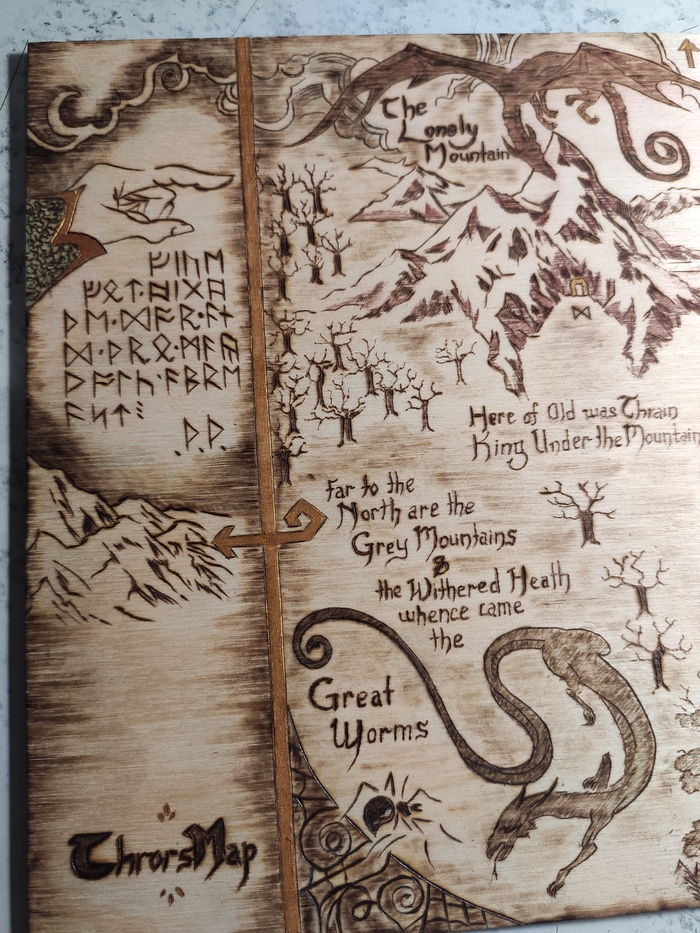 The
Lonely
Mountain
ᛞ
ᚠᛁᚢᛖ
ᚠᛟᛏ·ᚻᛁᚷᚻ
ᚦᛖ·ᛞᚩᚱ·ᚪᚾ
ᛞ·ᚦᚱᛟ·ᛗᚪᚣ
ᚹᚪᛚᚳ·ᚪᛒᚱᛖ
ᚪᛋᛏ⁝
.ᚦ.ᚦ.
Here of Old was Thrain
King Under the Mountain
Far to the
North are the
Grey Mountains
&
the Withered Heath
whence came
the
Great
Worms
Thrors Map